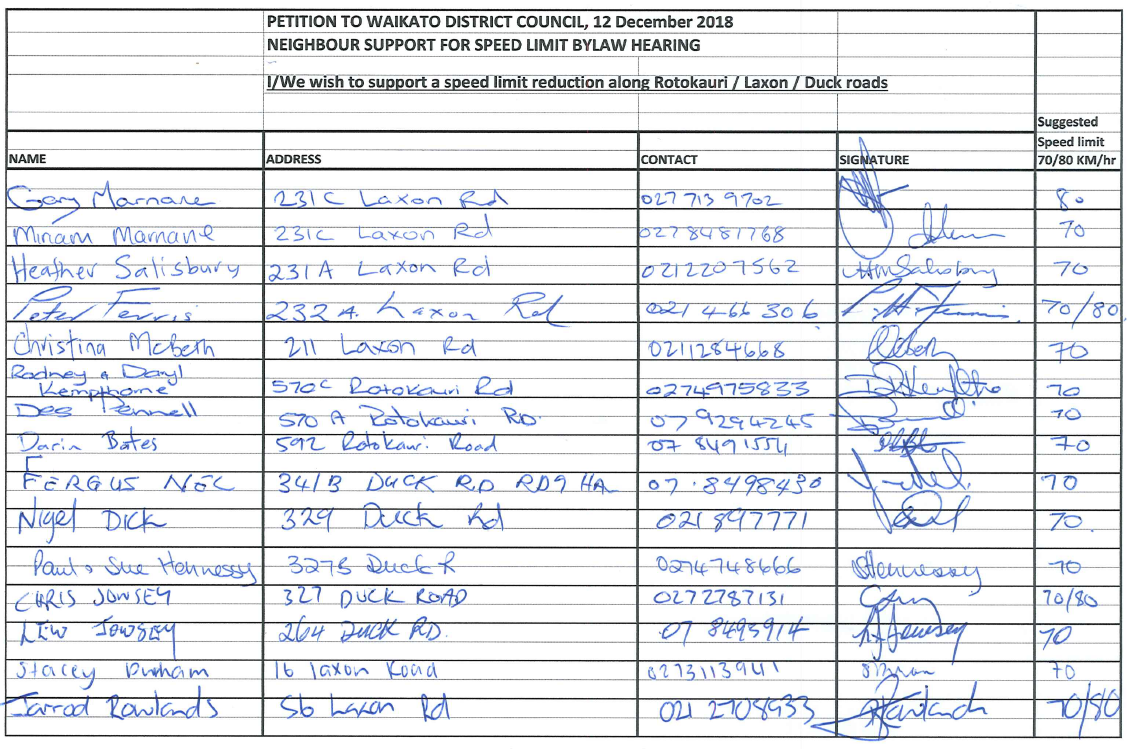 PETITION TO WAIKATO DISTRICT COUNCIL, 12 December 2018
NEIGHBOUR SUPPORT FOR SPEED LIMIT BYLAW HEARING
I/We wish to support a speed limit reduction along Rotokauri / Laxon / Duck roads
Suggested
Speed limit
NAME ADDRESS CONTACT SIGNATURE 70/80 KM/hr
Gary Marnane 231C Laxon Rd 027 713 9702 80
Miriam Marnane 231C Laxon Rd 0278481768 70
Heather Salisbury 231A Laxon Rd 0212207562 HMSalisbury 70
Peter Ferris 232A. Laxon Rd 021 466 306 70/80
Christina McBeth 211 Laxon Rd 0211284668 70
Rodney & Daryl
Kempthorne 570C Rotokauri Rd 0274975833 70
Des Pennell 570 A Rotokauri RD. 07 9294245 70
Darin Bates 592 Rotokauri Road 07 8491554 70
FERGUS NEC 341B DUCK RD RD9 HA 07.8498430 70
Nigel DICK 329 Duck Rd 021897771 70.
Paul & Sue Hennessy 327B Duck R 0274748666 SHennessy 70
CHRIS JOWSEY 327 DUCK ROAD 0272787131 70/80
LEW JOWSEY 264 DUCK RD. 07 8495914 Jowsey 70
Stacey Durham 16 laxon Road 0273113941 70
Jarrod Rowlands 56 Laxon Rd 021 2708933 Rowlands 70/80